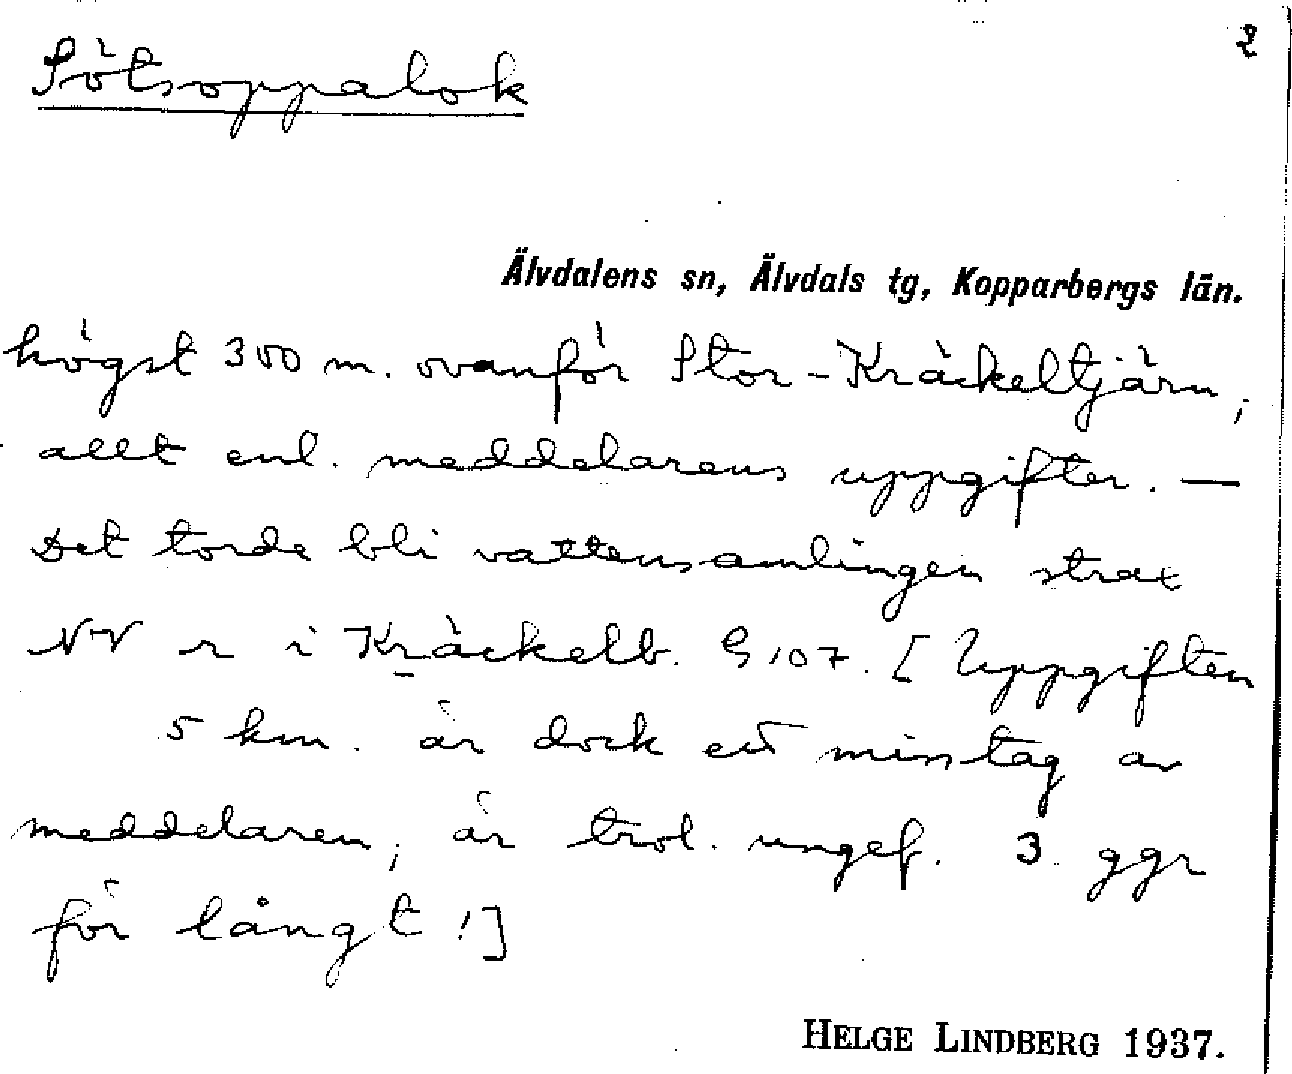 Sötsoppalok
2
Älvdalens sn, Älvdals tg, Kopparbergs län.
högst 300 m. ovanför Stor-Kräckeltjärn,
allt enl. meddelarens uppgifter. —
Det torde bli vattensamlingen strax
NV r i Kräckelb. G 107. [Uppgiften
5 km. är dock ett misstag av
meddelaren, är trol. ungef. 3 ggr
för långt!]
HELGE LINDBERG 1937.